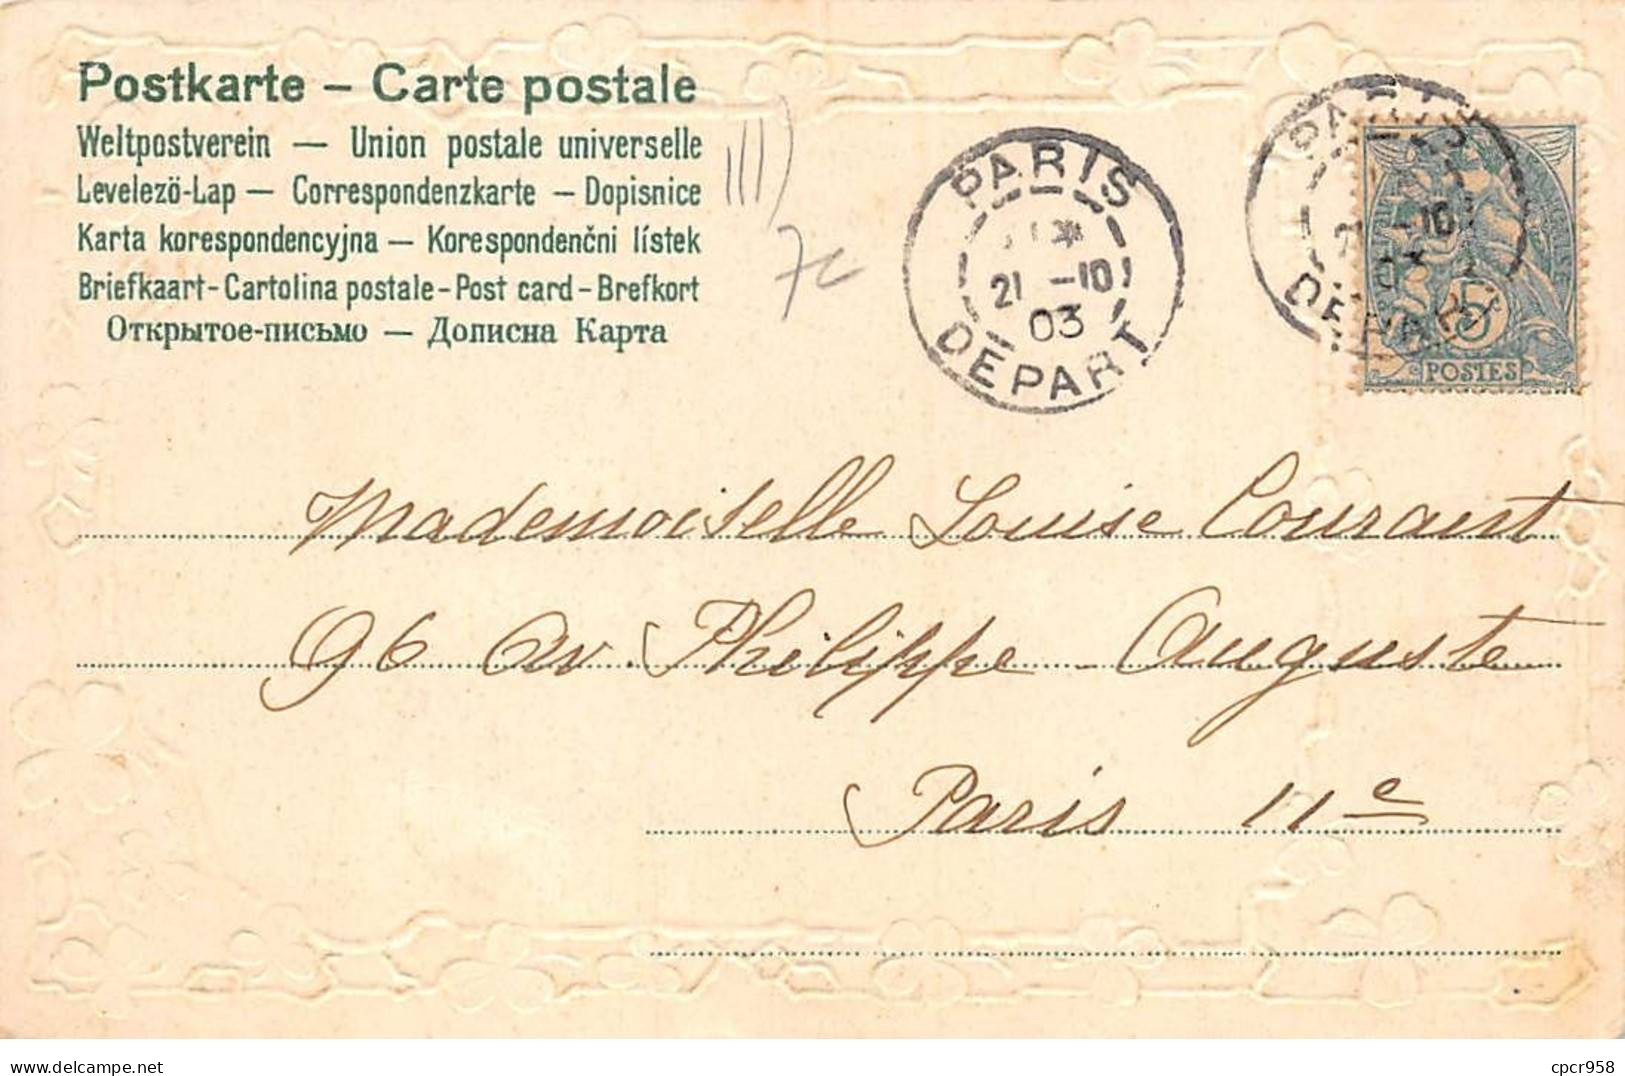 Postkarte – Carte postale
Weltpostverein — Union postale universelle
Levelezö-Lap — Correspondenzkarte — Dopisnice
Karta korespondencyjna — Korespondenční lístek
Briefkaart - Cartolina postale - Post card - Brefkort
Открытое-письмо — Дописна Карта
7c
PARIS
21 -10
03
DEPART
PARIS
-10
03
DEPART
5
POSTES
Mademoiselle Louise Courant
96 Av. Philippe-Auguste
Paris 11e
delcampe.net
cpcr958